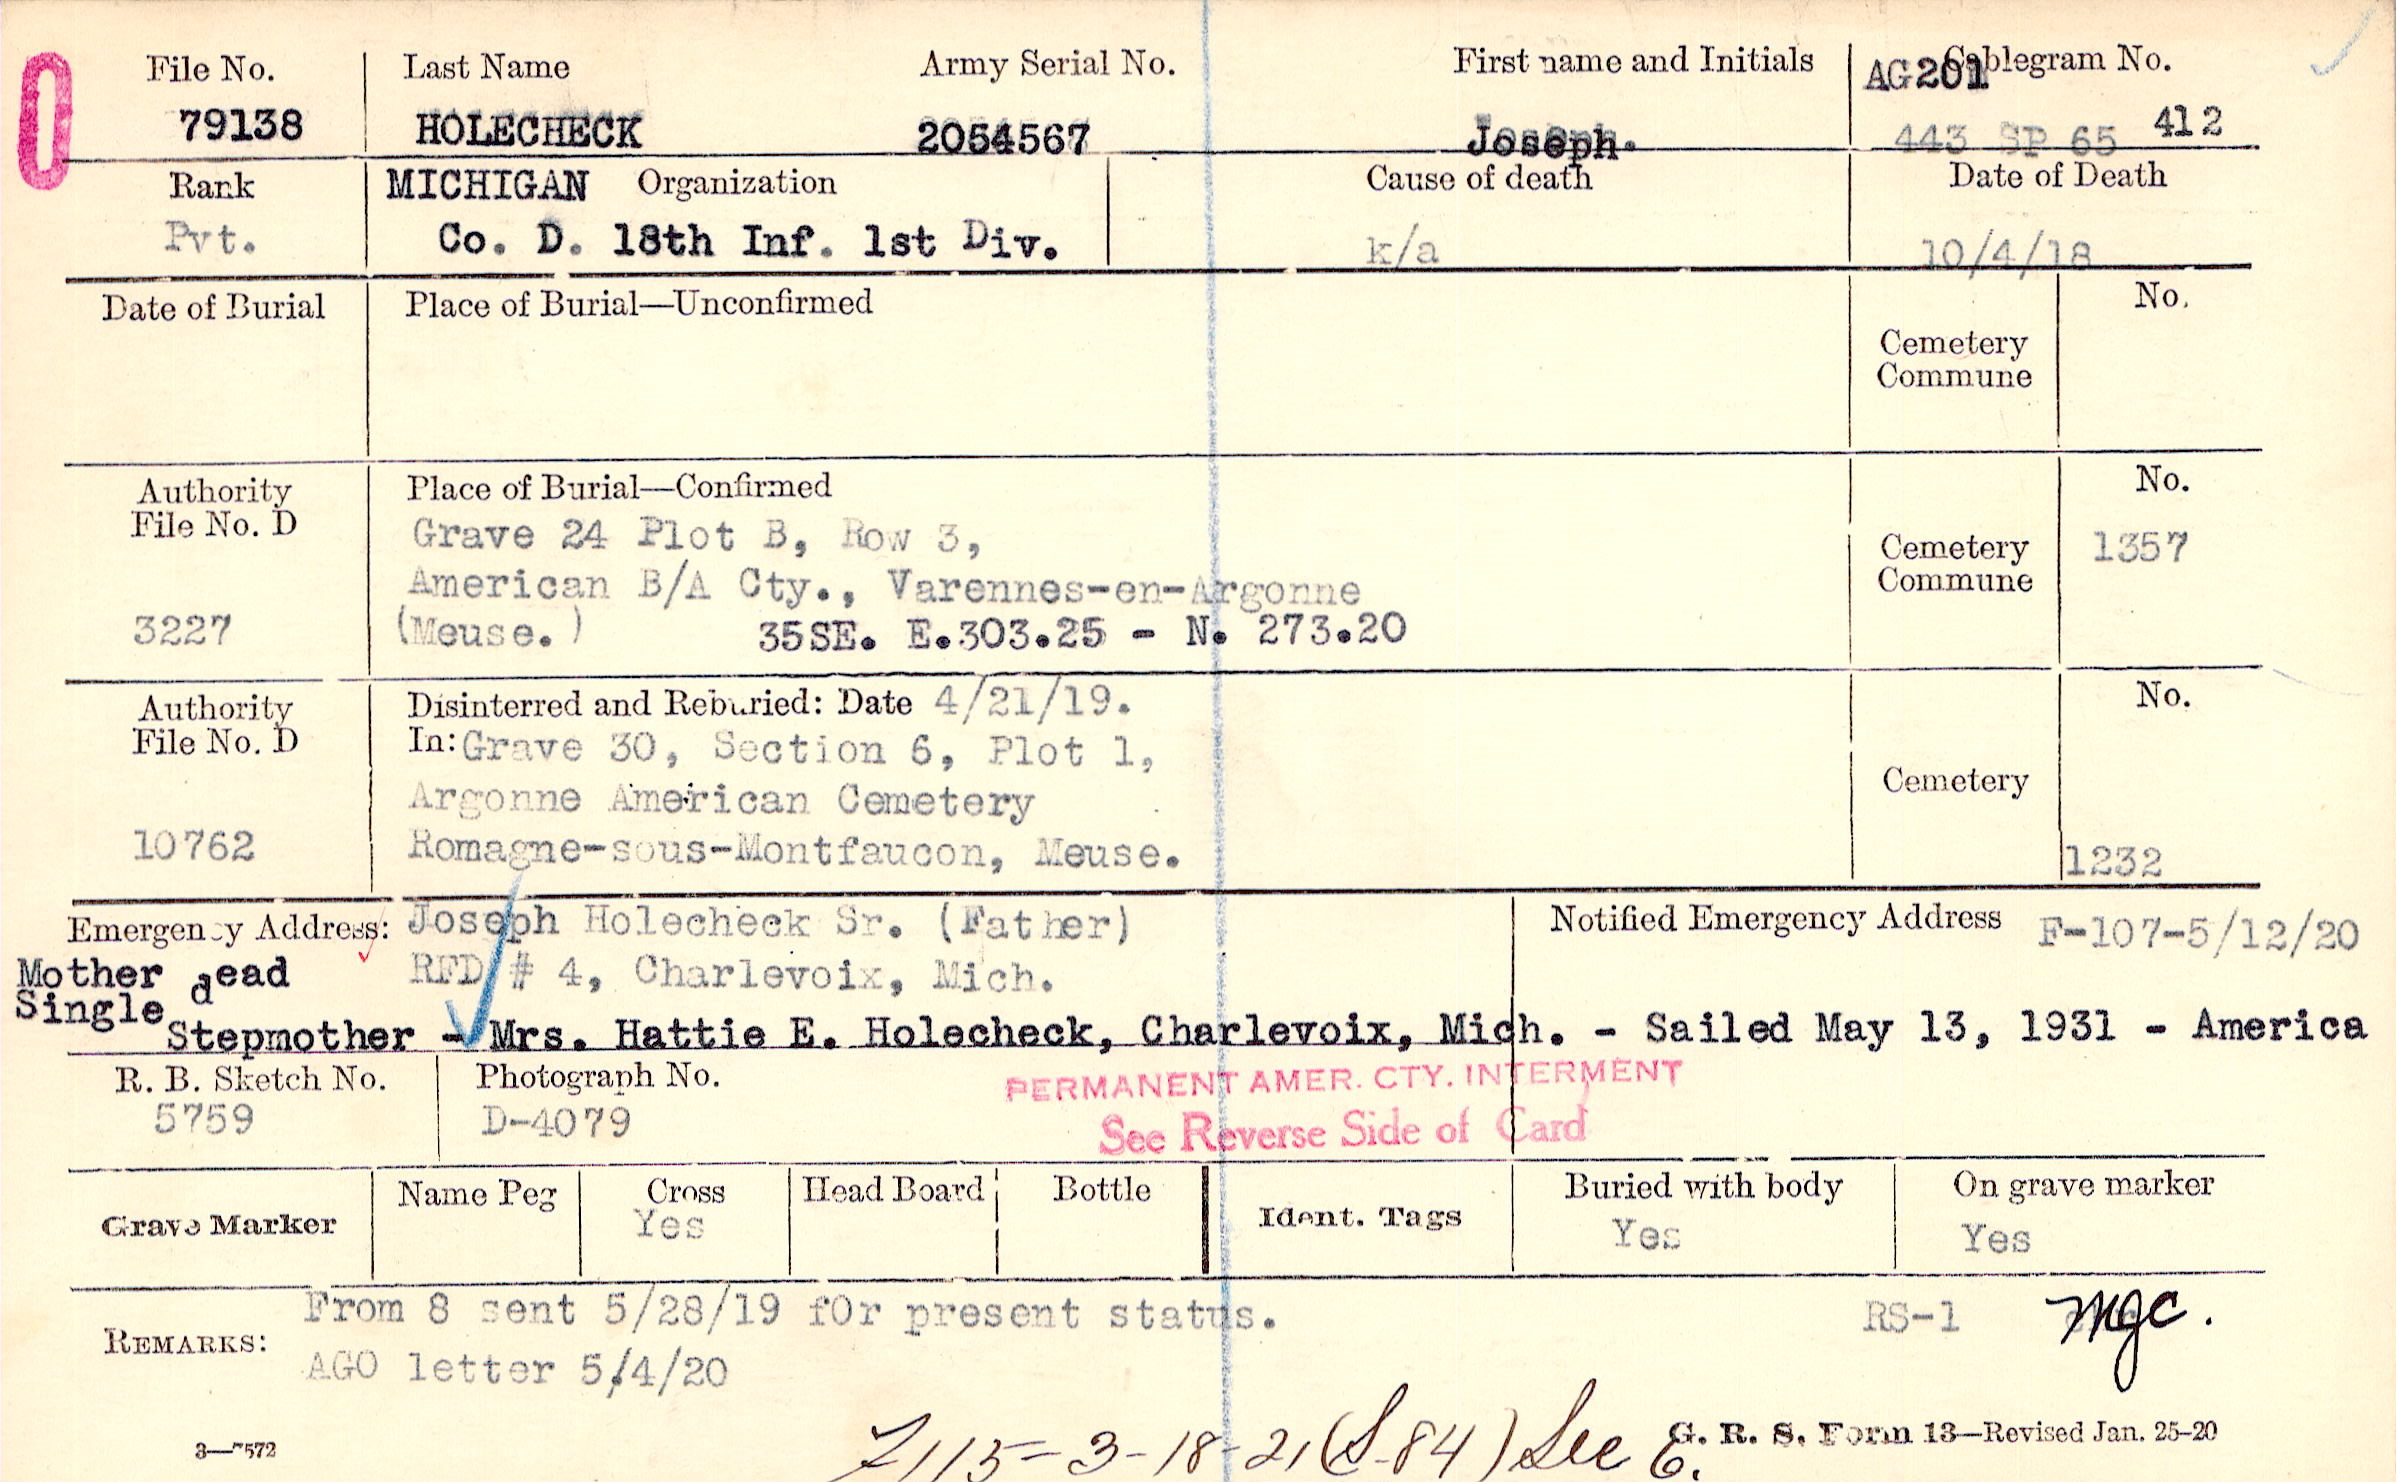 File No. Last Name Army Serial No. First name and Initials AG201 Cablegram No.
79138 HOLECHECK 2054567 Joseph. 443 SP 65 412
Rank MICHIGAN Organization Cause of death Date of Death
Pvt. Co. D. 18th Inf. 1st Div. k/a 10/4/18
Date of Burial Place of Burial—Unconfirmed No.
Cemetery
Commune
Authority Place of Burial—Confirmed No.
File No. D Grave 24 Plot B, Row 3, Cemetery 1357
American B/A Cty., Varennes-en-Argonne Commune
3227 (Meuse.) 35SE. E.303.25 - N. 273.20
Authority Disinterred and Reburied: Date 4/21/19. No.
File No. D In: Grave 30, Section 6, Plot 1,
Argonne American Cemetery Cemetery
10762 Romagne-sous-Montfaucon, Meuse. 1232
Emergency Address: Joseph Holecheck Sr. (Father) Notified Emergency Address F-107-5/12/20
Mother dead RFD # 4, Charlevoix, Mich.
Single
Stepmother - Mrs. Hattie E. Holecheck, Charlevoix, Mich. - Sailed May 13, 1931 - America
R. B. Sketch No. Photograph No. PERMANENT AMER. CTY. INTERMENT
5759 D-4079 See Reverse Side of Card
Grave Marker Name Peg Cross Head Board Bottle Ident. Tags Buried with body On grave marker
Yes Yes Yes
From 8 sent 5/28/19 f0r present status. RS-1 mgc.
REMARKS:
AGO letter 5/4/20
3—7572 7115-3-18-21 (S-84) See E. G. R. S. Form 13—Revised Jan. 25-20